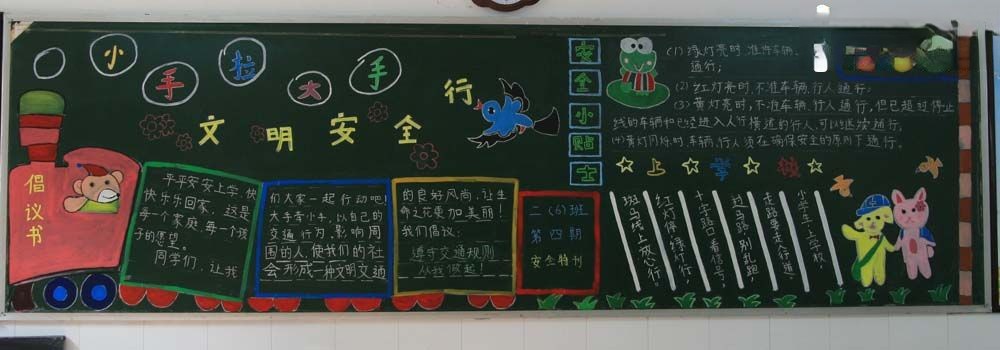 小手拉大手
文明安全行
倡议书
平平安安上学,快
快乐乐回家,这是
每一个家庭,每一个孩
子的愿望。
同学们,让我
们大家一起行动吧!
大手牵小手,以自己的
交通行为,影响周
围的人,使我们的社
会形成一种文明交通
的良好风尚,让生
命之花更加美丽!
我们倡议:
遵守交通规则
从我做起!
二(6)班
第四期
安全特刊
安全小贴士
(1)绿灯亮时,准许车辆、
通行;
(2)红灯亮时,不准车辆、行人通行;
(3)黄灯亮时,不准车辆、行人通行,但已超过停止
线的车辆和已经进入人行横道的行人,可以继续通行。
(4)黄灯闪烁时,车辆、行人须在确保安全的原则下通行。
☆上☆学☆歌☆
小学生,上学校,
走路要走人行道,
过马路,别乱跑,
十字路口看信号,
红灯停,绿灯行,
斑马线上放心行。